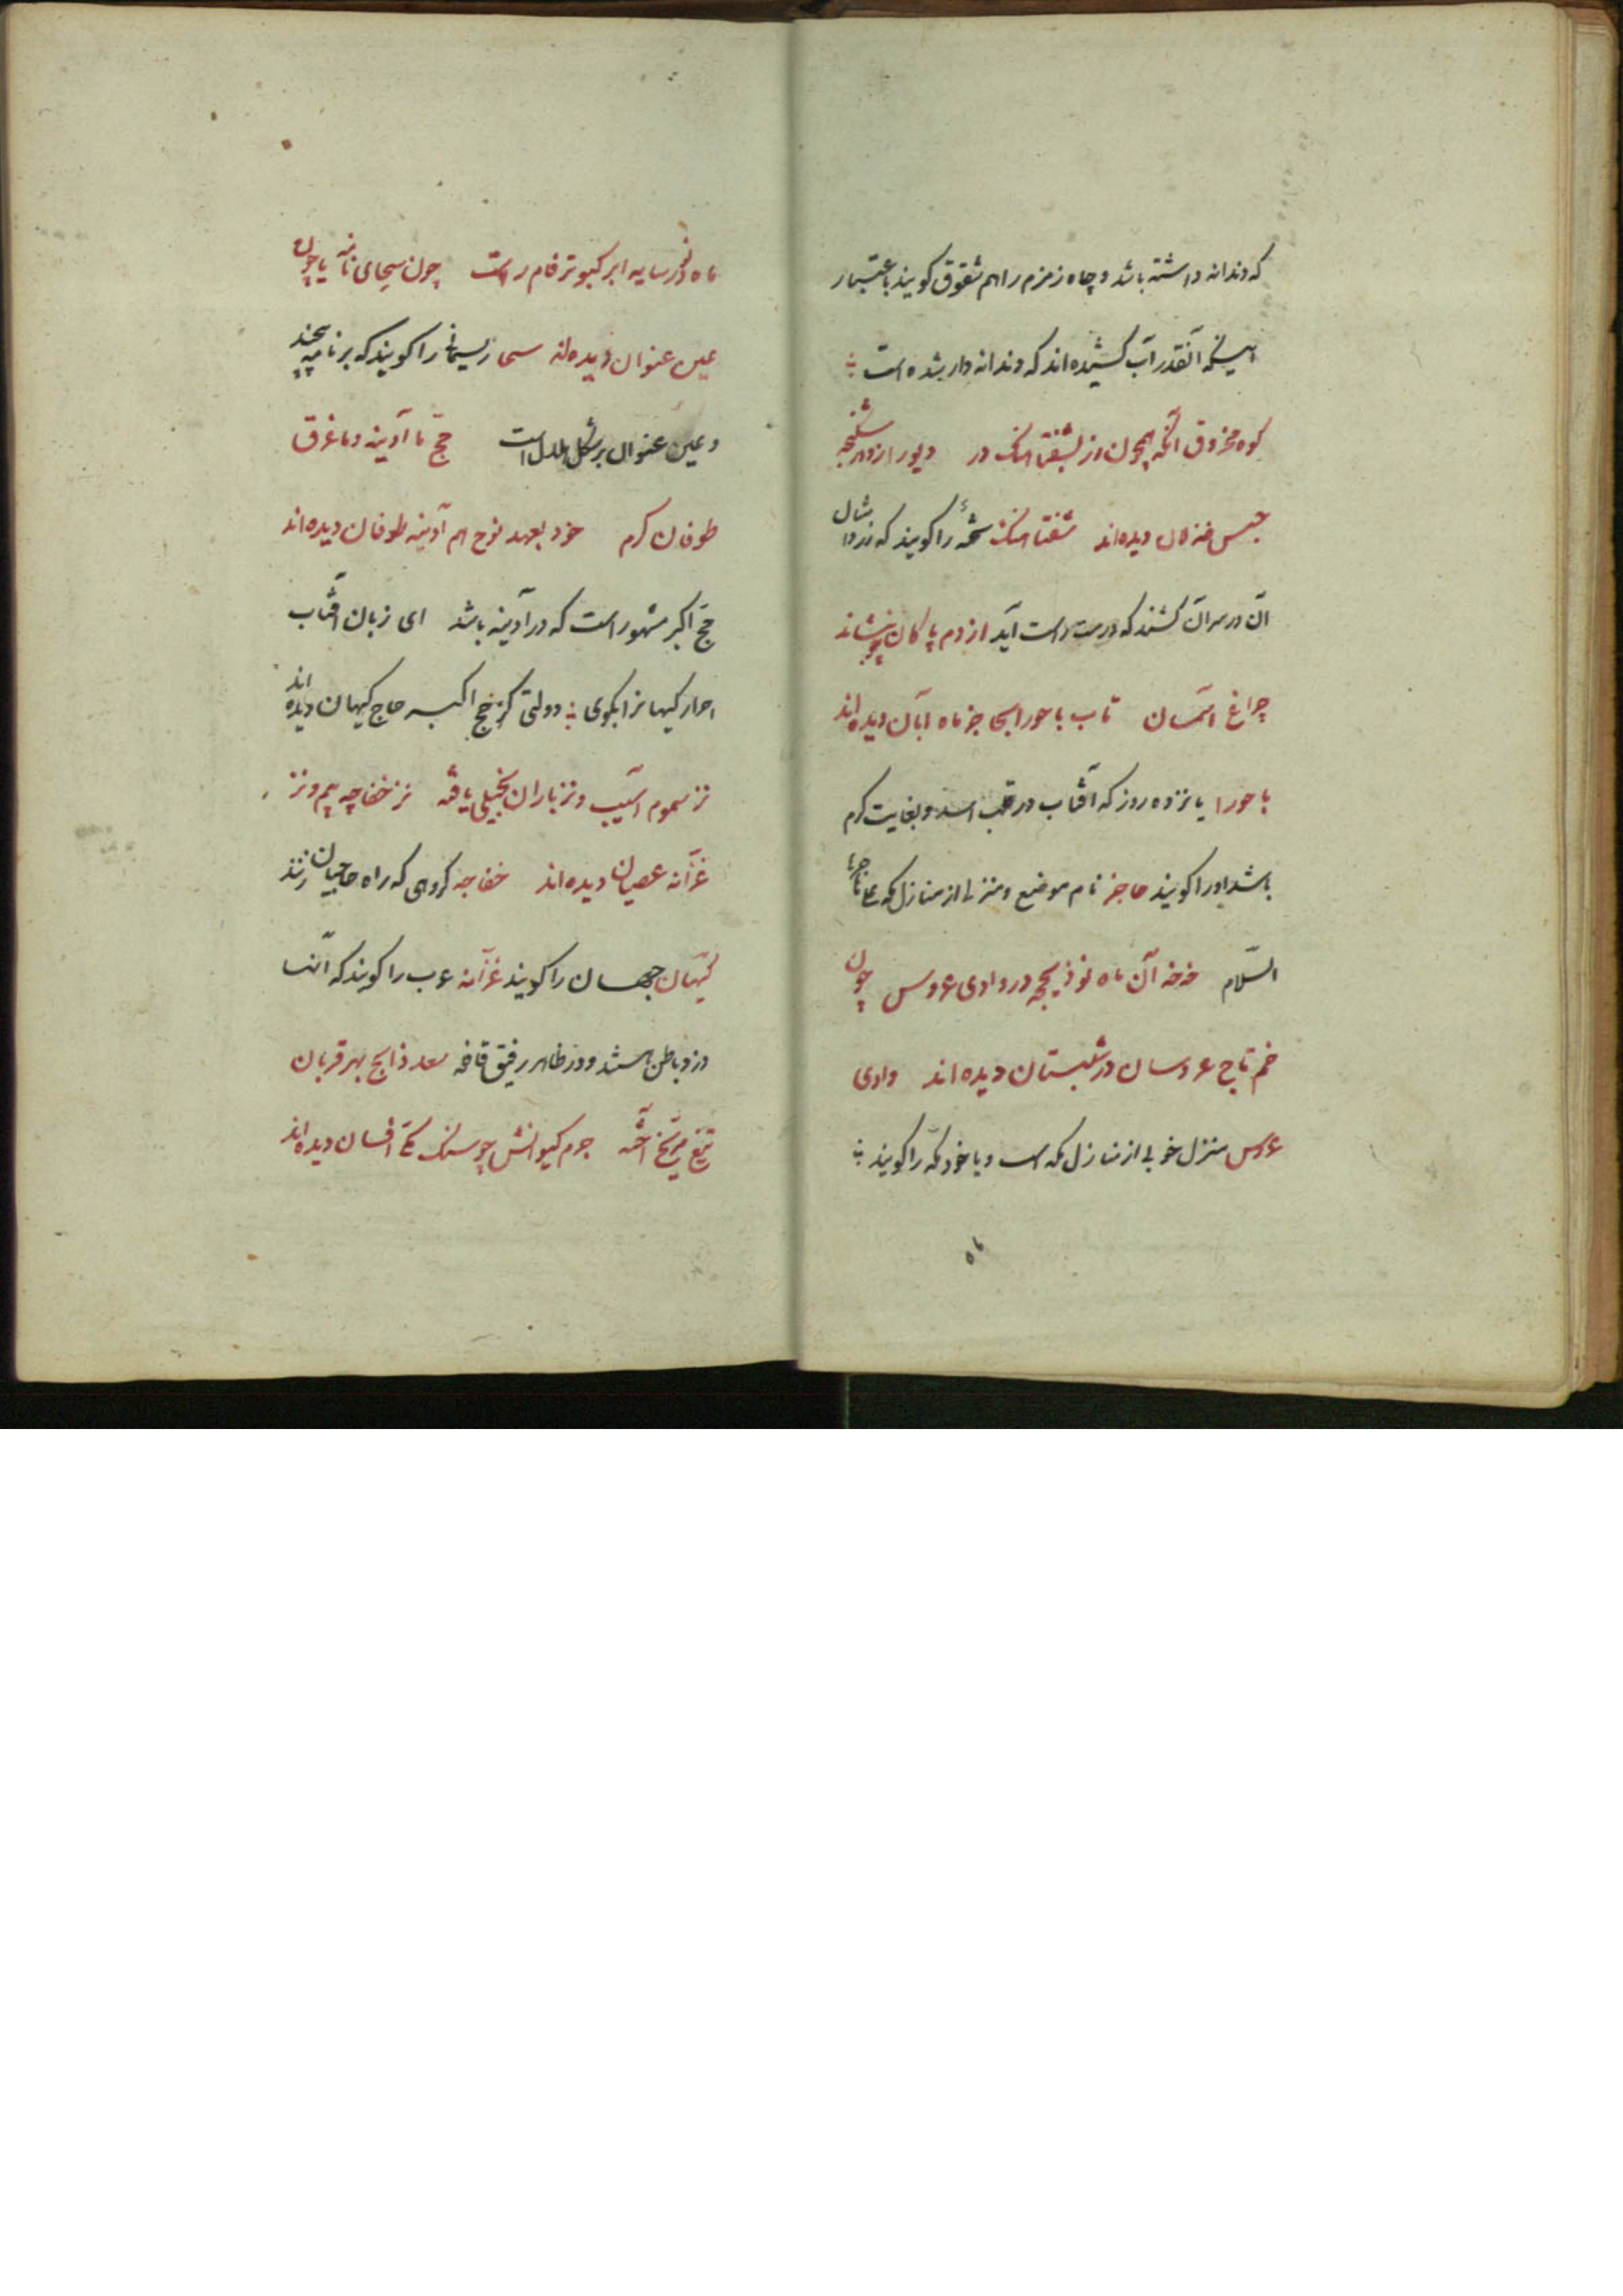 که دندانه داشته باشد و چاه زمزم را هم شقوق کویند باعتبار
اینکه آنقدر آب کشیده اند که دندانه دار شده است
کوه محزوق آنکه همچون زر بشفشاهنک در دیو را زو در شکنجه
حبس خذلان دیده‌اند شفشاهنک شحهٔ را کویند که زر را مثال
آن در سر آن کشند که درست راست آید از دم پاکان چو بنشاند
چراغ آسمان تاب باحورا بجا جز ماه آبان دیده‌اند
باحورا پانزده روز که آفتاب در قلب اسد و بغایت کرم
باشد او را کویند حاجز نام موضع و منزلی از منازل مکه علی
السّلام خه خه آن ماه نو ذیحجه در وادی عروس چون
خم تاج عروسان در شبستان دیده‌اند وادی
عروس منزل خوبی از منازل مکه است و یا خود مکّه را کویند
ماه
ماه نو در سایه ابر کبوترفام راست چون سحای نامه یا چون
عین عنوان دیده‌اند سحا ریسمانی را کویند که بر نامه پیچند
و عین عنوان بر شکل هلال است حج ما آدینه و ما غرق
طوفان کرم خود بعهد نوح هم آدینه طوفان دیده‌اند
حج اکبر مشهور است که در آدینه باشد ای زبان آفتاب
احرار کیهانرا بکوی دولتی کز حج اکبر حاج کیهان دیده‌اند
نز سموم آسیب و نز باران بخیلی یافته نز خفاجه بیم و نز
غزّانه عصیان دیده‌اند خفاجه کروهی که راه حاجیان زنند
کیهان جهان را کویند غزّانه عرب را کویند که آنها
دزد باطن باشند و در ظاهر رفیق قافله سعد ذابح بهر قربان
تیغ مریخ آخته جرم کیوانش چو سنک مکی افسان دیده‌اند